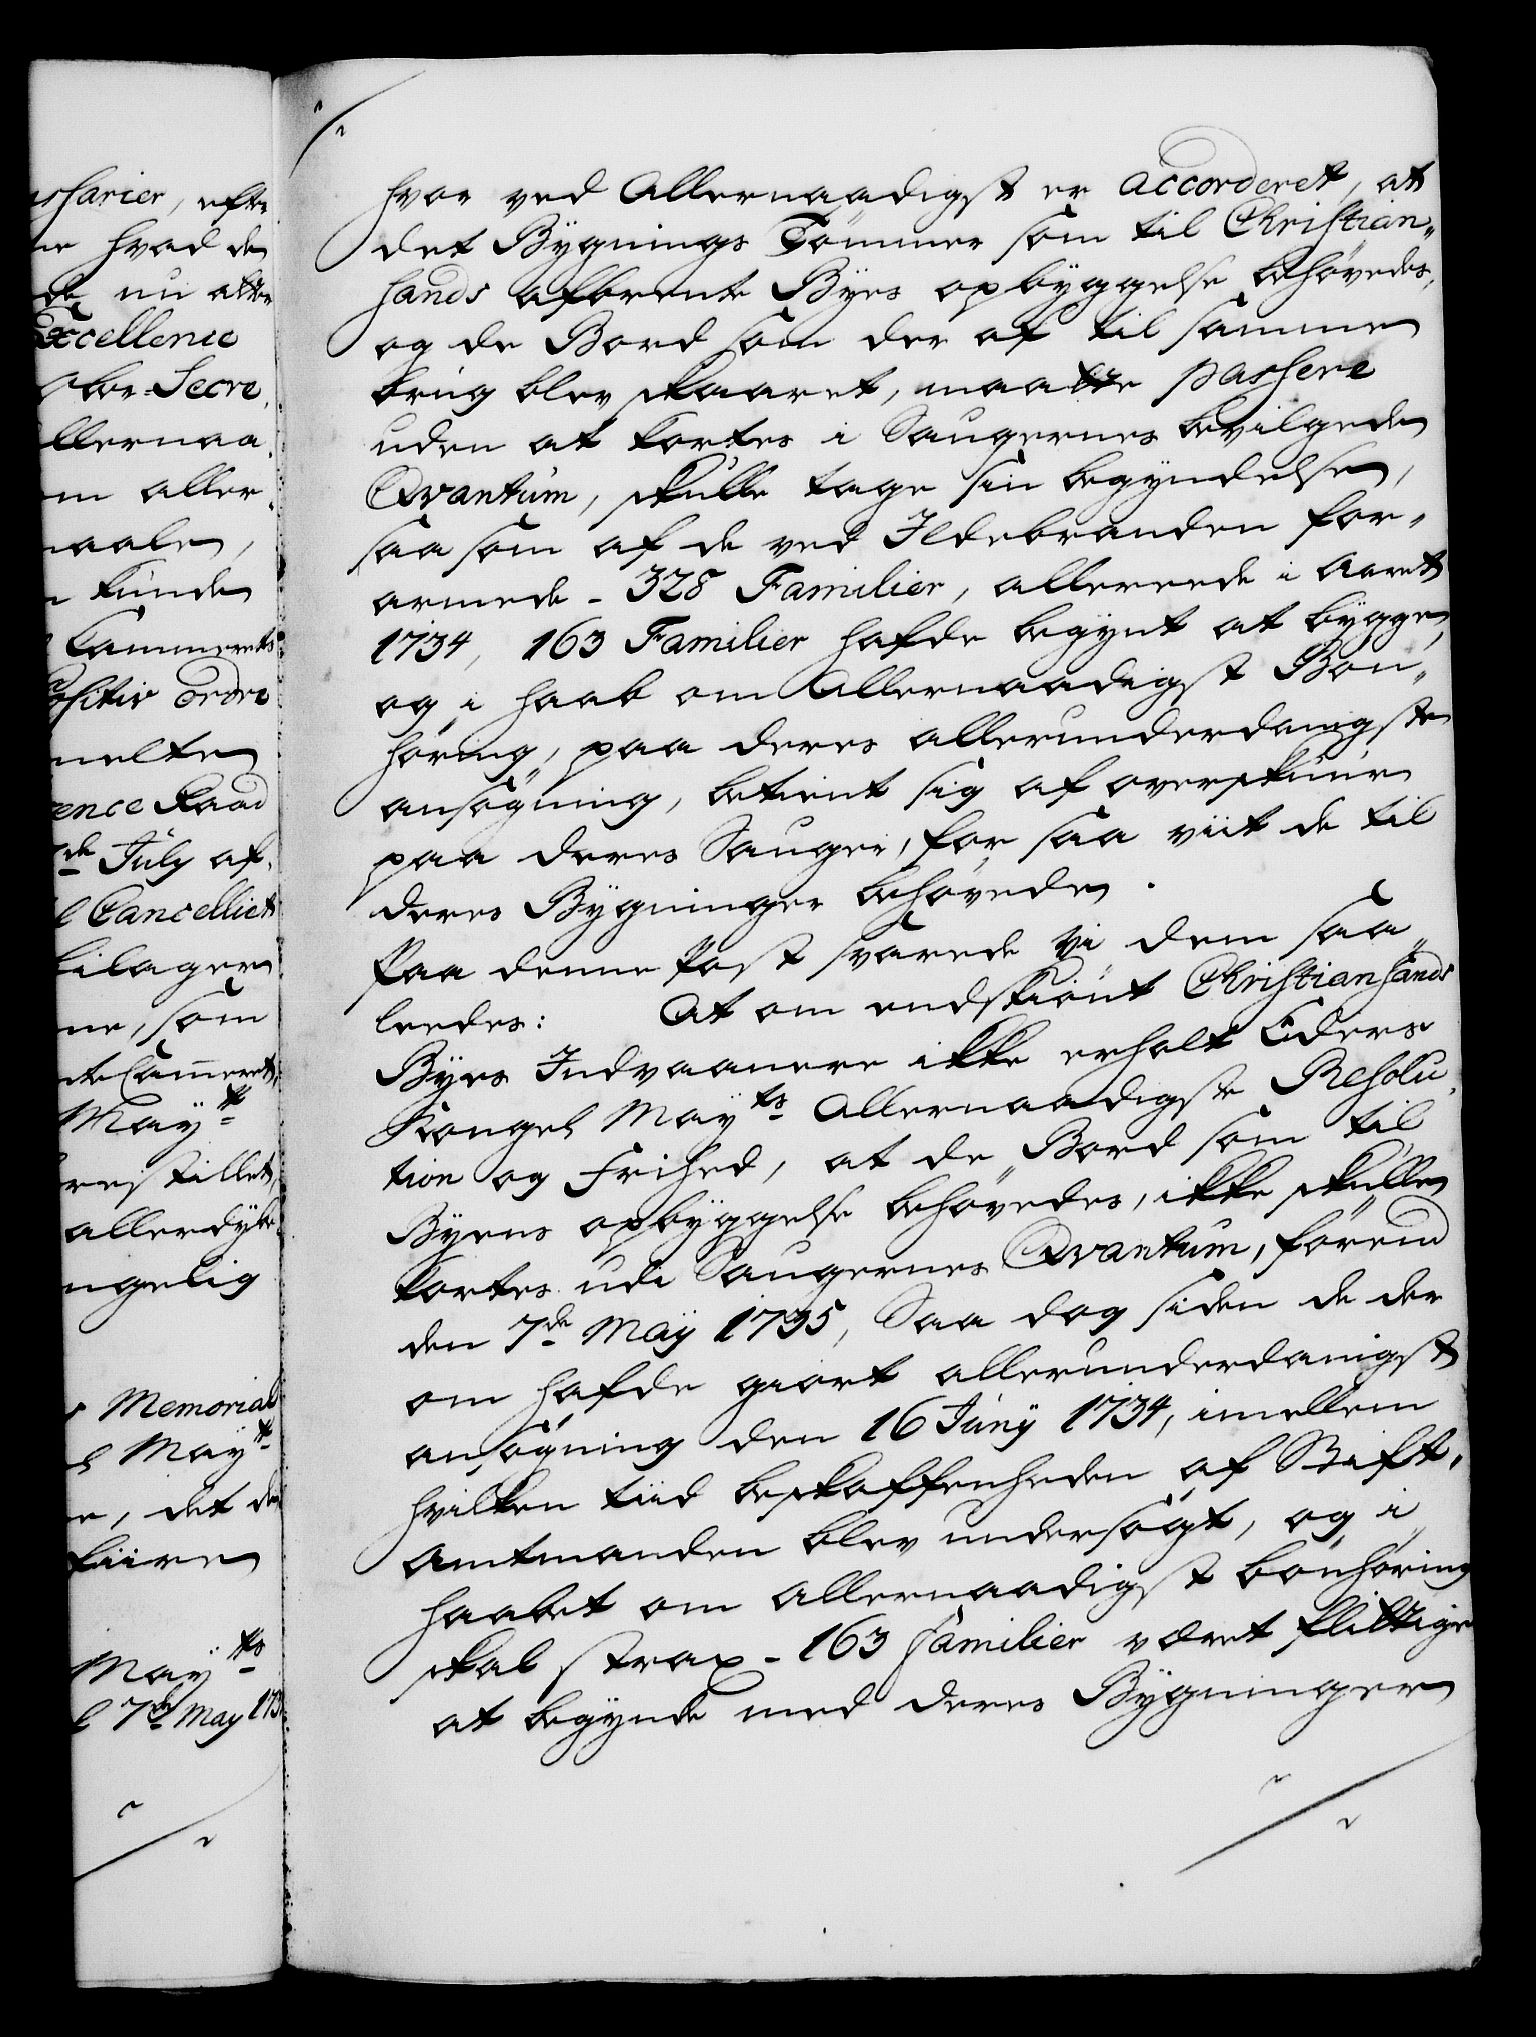 ssarier, efter
ne hvad de
de nu atter
Excellence
Ober-Secre,
llernaa,
om aller,
naale,
kunde
Cammerets
positiv ordre
melte
rence Raad
de July af,
l Cancelliet
bilager
ne, som
te Cammeret,
May tt
restillet,
allerdybe
ngelig
Memorial
May tt
e, det de
May ts
l 7de May 173
hvor ved Allernaadigst er accorderet, at
det Bygnings Tömmer som til Christian„
sands afbrente Byes opbyggelse behövedes,
og de Bord som der af til samme
brug blev skaaret, maatte passere
uden at kortes i Saugernes bevilgede
Qvantum, skulle tage sin begyndelse,
saa som af de ved Ildebranden for„
armede - 328 Familier, allereede i Aaret
1734, 163 Familier hafde begynt at bygge,
og i haab om Allernaadigst Bön„
höring, paa deres allerunderdanigste
ansögning, betient sig af overskuur
paa deres Sauger, for saa viit de til
deres Bygninger behövede.
Paa denne Post svarede Vi dem saa„
leedes: At om endskiönt Christiansands
Byes Indvaanere ikke erholt Eders
Kongel May ts Allernaadigste Resolu„
tion og Frihed, at de Bord som til
Byens opbyggelse behövedes, ikke skulle
kortes udi Saugernes Qvantum, förend
den 7de May 1735, Saa dog siden de der
om hafde giort allerunderdanigst
ansögning den 16 Juny 1734, imellem
hvilken tiid beskaffenheden af Stift„
amtmanden blev undersögt, og i
haabet om allernaadigst bönhöring
skal strax - 163 Familier været flittige
at begynde med deres Bygninger